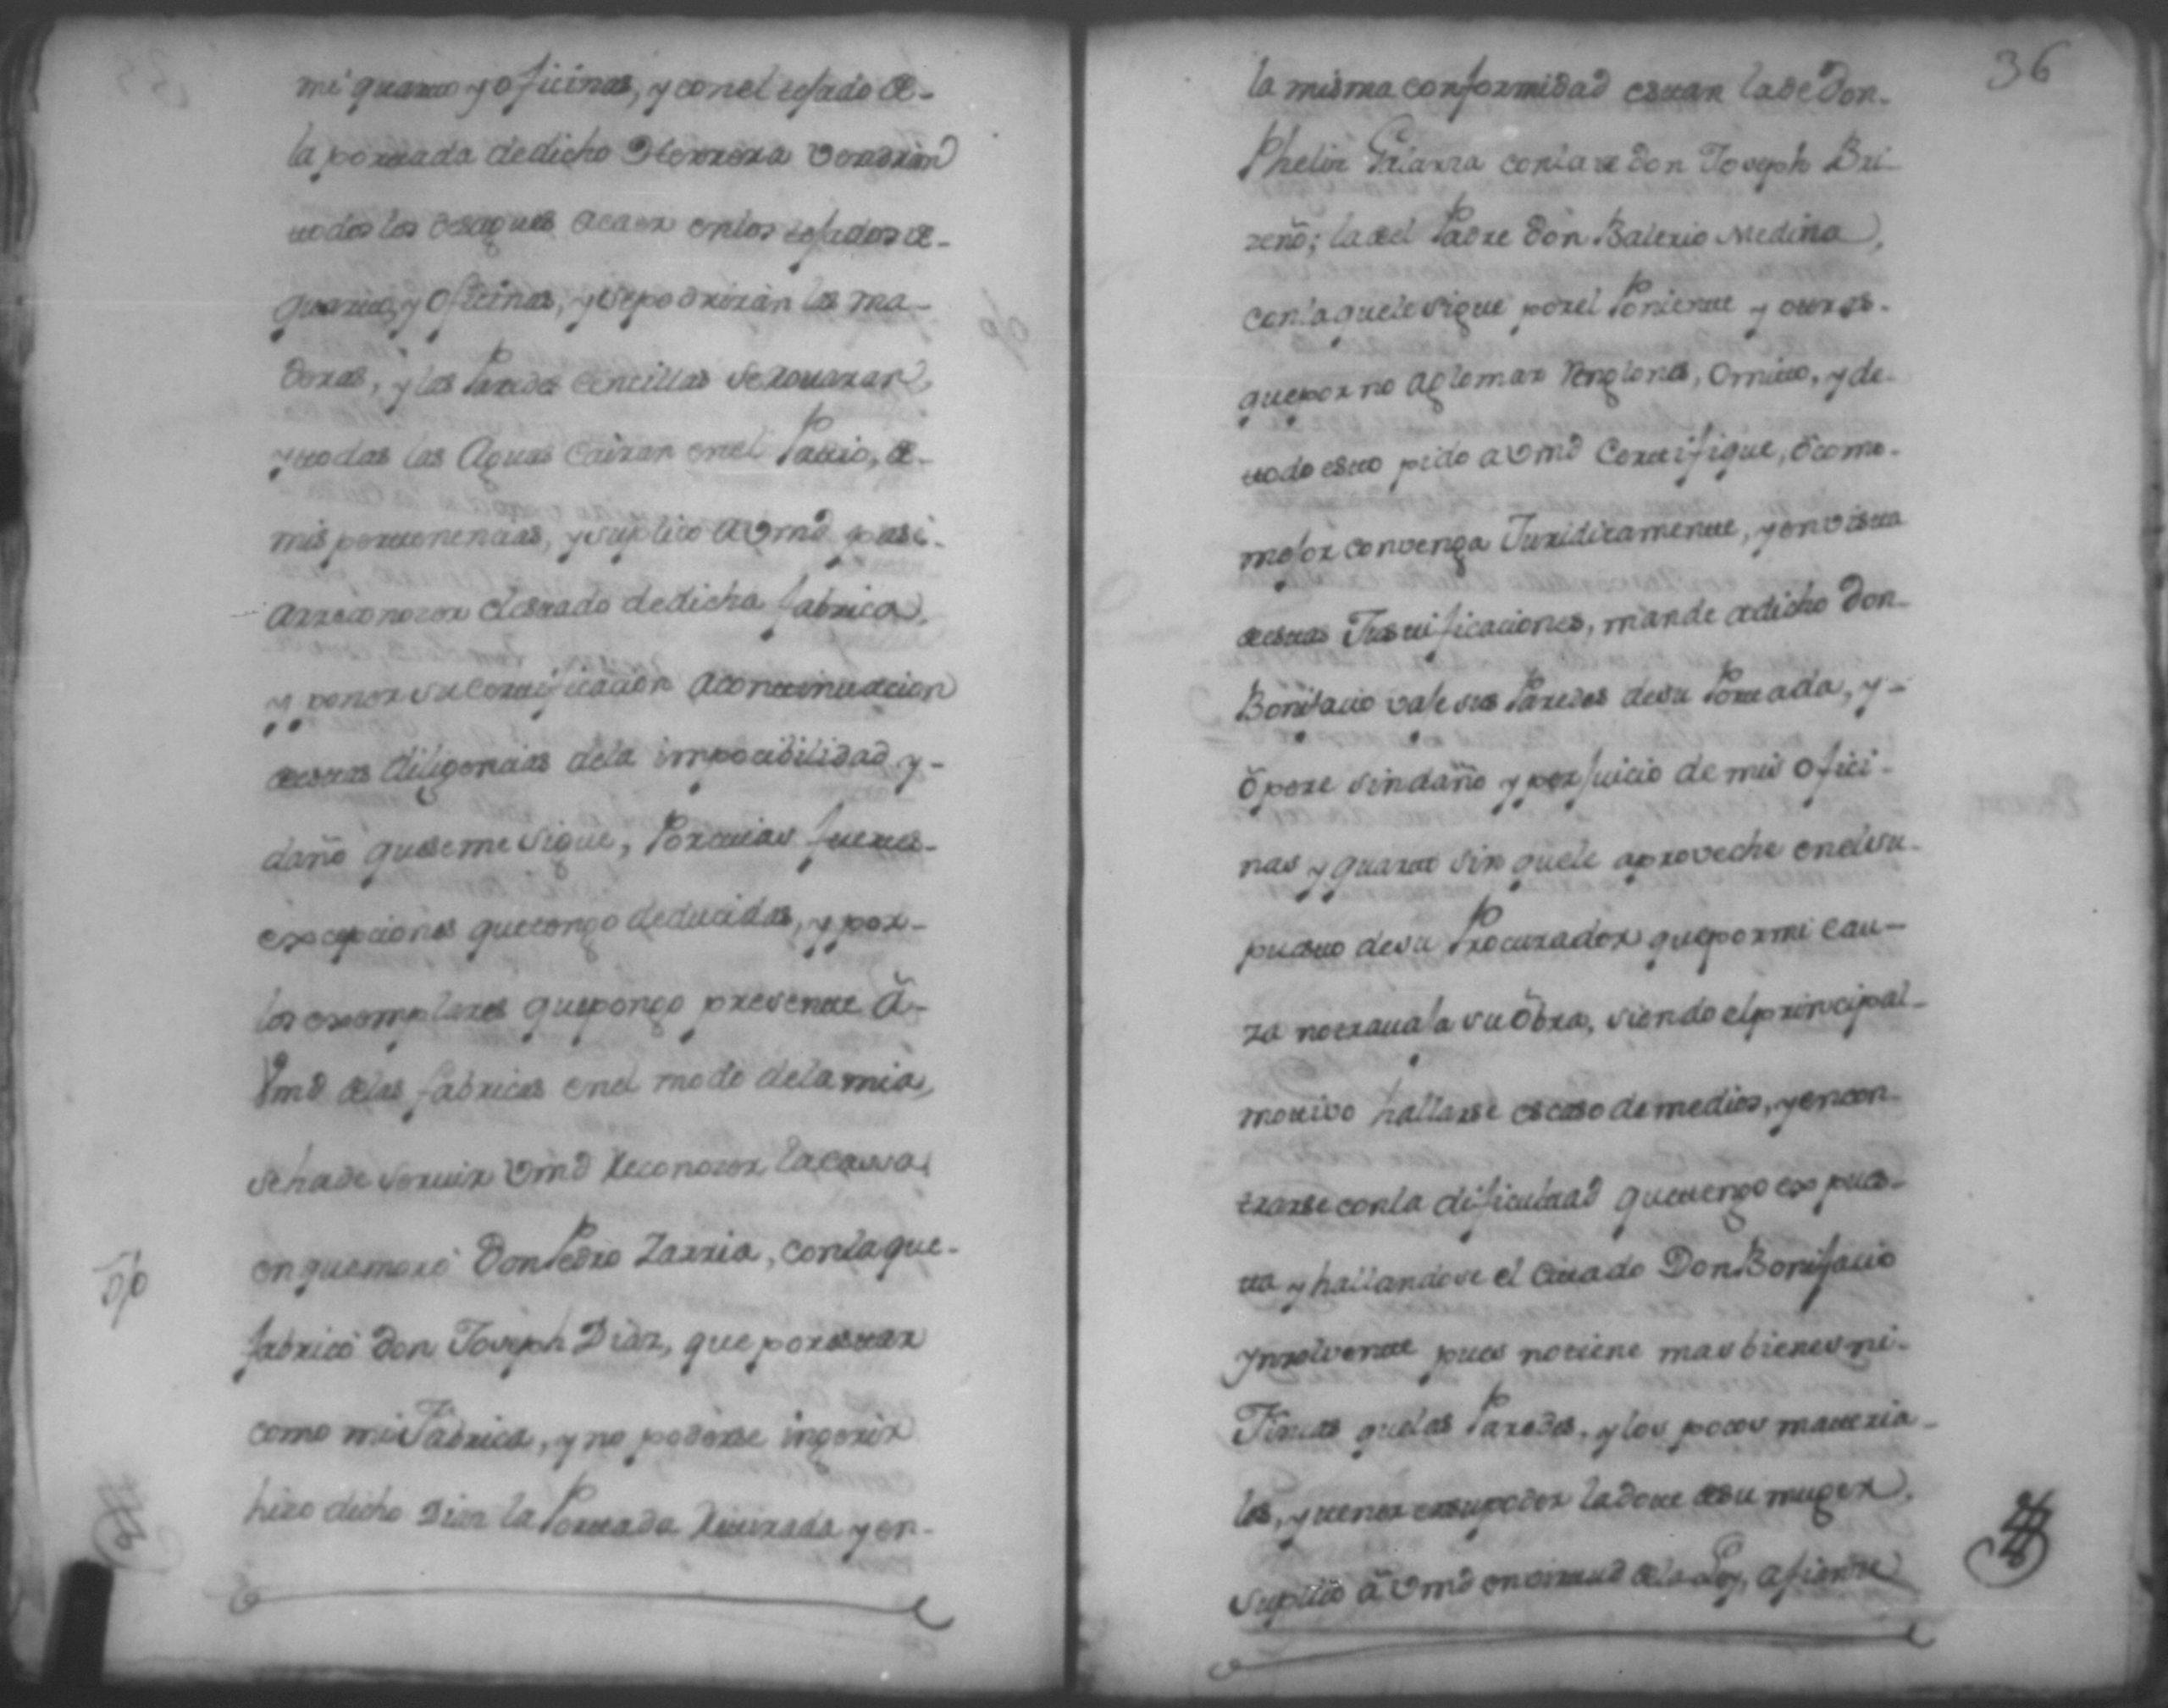 mi quarto y oficinas, y con el tejado de-
la portada de dicho Herrera vendran
todos los desagues a caer en los tejados de-
quarto, y oficinas, y se podriran las ma-
deras, y las Paredes cencillas se
y todas las Aguas cairan en el Patio, de-
mis pertenencias, y suplico a Vmd pasi-
a rreconozer el estado de dicha fabrica,
y poner su Certificacion a continuacion
de estas diligencias de la impocibilidad y-
daño que se me sigue, Por tan fuertes-
excepciones que tengo deducidas, y por-
los exemplares que pongo presente â-
Vmd de las fabricas en el modo de la mia,
se ha de servir Vmd Reconozer la cassa,
en que moró Don Pedro Zarria, con la que-
fabricó Don Joseph Diaz, que por estar
como mi Fabrica, y no poderse ingerir
hizo dicho Diaz la Portada Retirada y en-
36
la misma conformidad estan la de Don-
Phelix con la de Don Joseph Bri-
zeño; la del Padre Don Balerio Medina,
con la que le sigue por el Poniente y otras-
que por no aglomar Renglones, Omito, y de-
todo esto pido a Vmd Certifique, ô como-
mejor convenga Juridicamente, y en vista
de estas Justificaciones, mande a dicho Don-
Bonifacio vaje sus Paredes de su Portada, y-
ôpere sin daño y perjuicio de mis ofici-
nas y quarto sin que le aproveche en el su-
puesto de su Procurador que por mi cau-
za no travaja su ôbra, siendo el principal-
motivo hallarse escaso de medios, y encon-
trarse con la dificultad que tengo expues-
ta y hallandose el citado Don Bonifacio
Ynsolvente pues no tiene mas bienes ni-
Fincas que las Paredes, y los pocos materia-
les, y tener en su poder la dote de su muger,
suplico â Vmd en virtud de la Ley, afiance